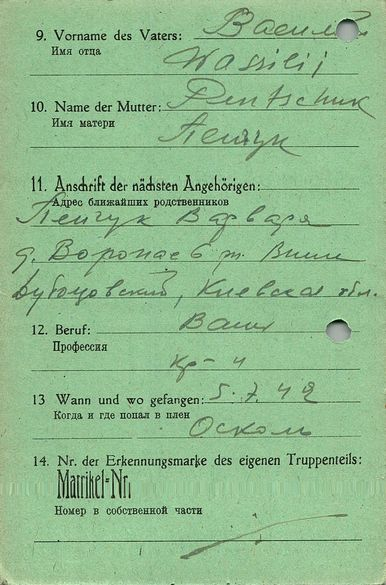 9. Vorname des Vaters: Василий
Имя отца
Wassilij
10. Name der Mutter: Pentschuk
Имя матери
Пенчук
11. Anschrift der nächsten Angehörigen:
Адрес ближайших родственников
Пенчук Варвара
д.
Киевская обл.
12. Beruf:
Профессия
кр-н
13 Wann und wo gefangen: 5.7.42
Когда и где попал в плен
Оскол
14. Nr. der Erkennungsmarke des eigenen Truppenteils:
Matrikel-Nr.
Номер в собственной части